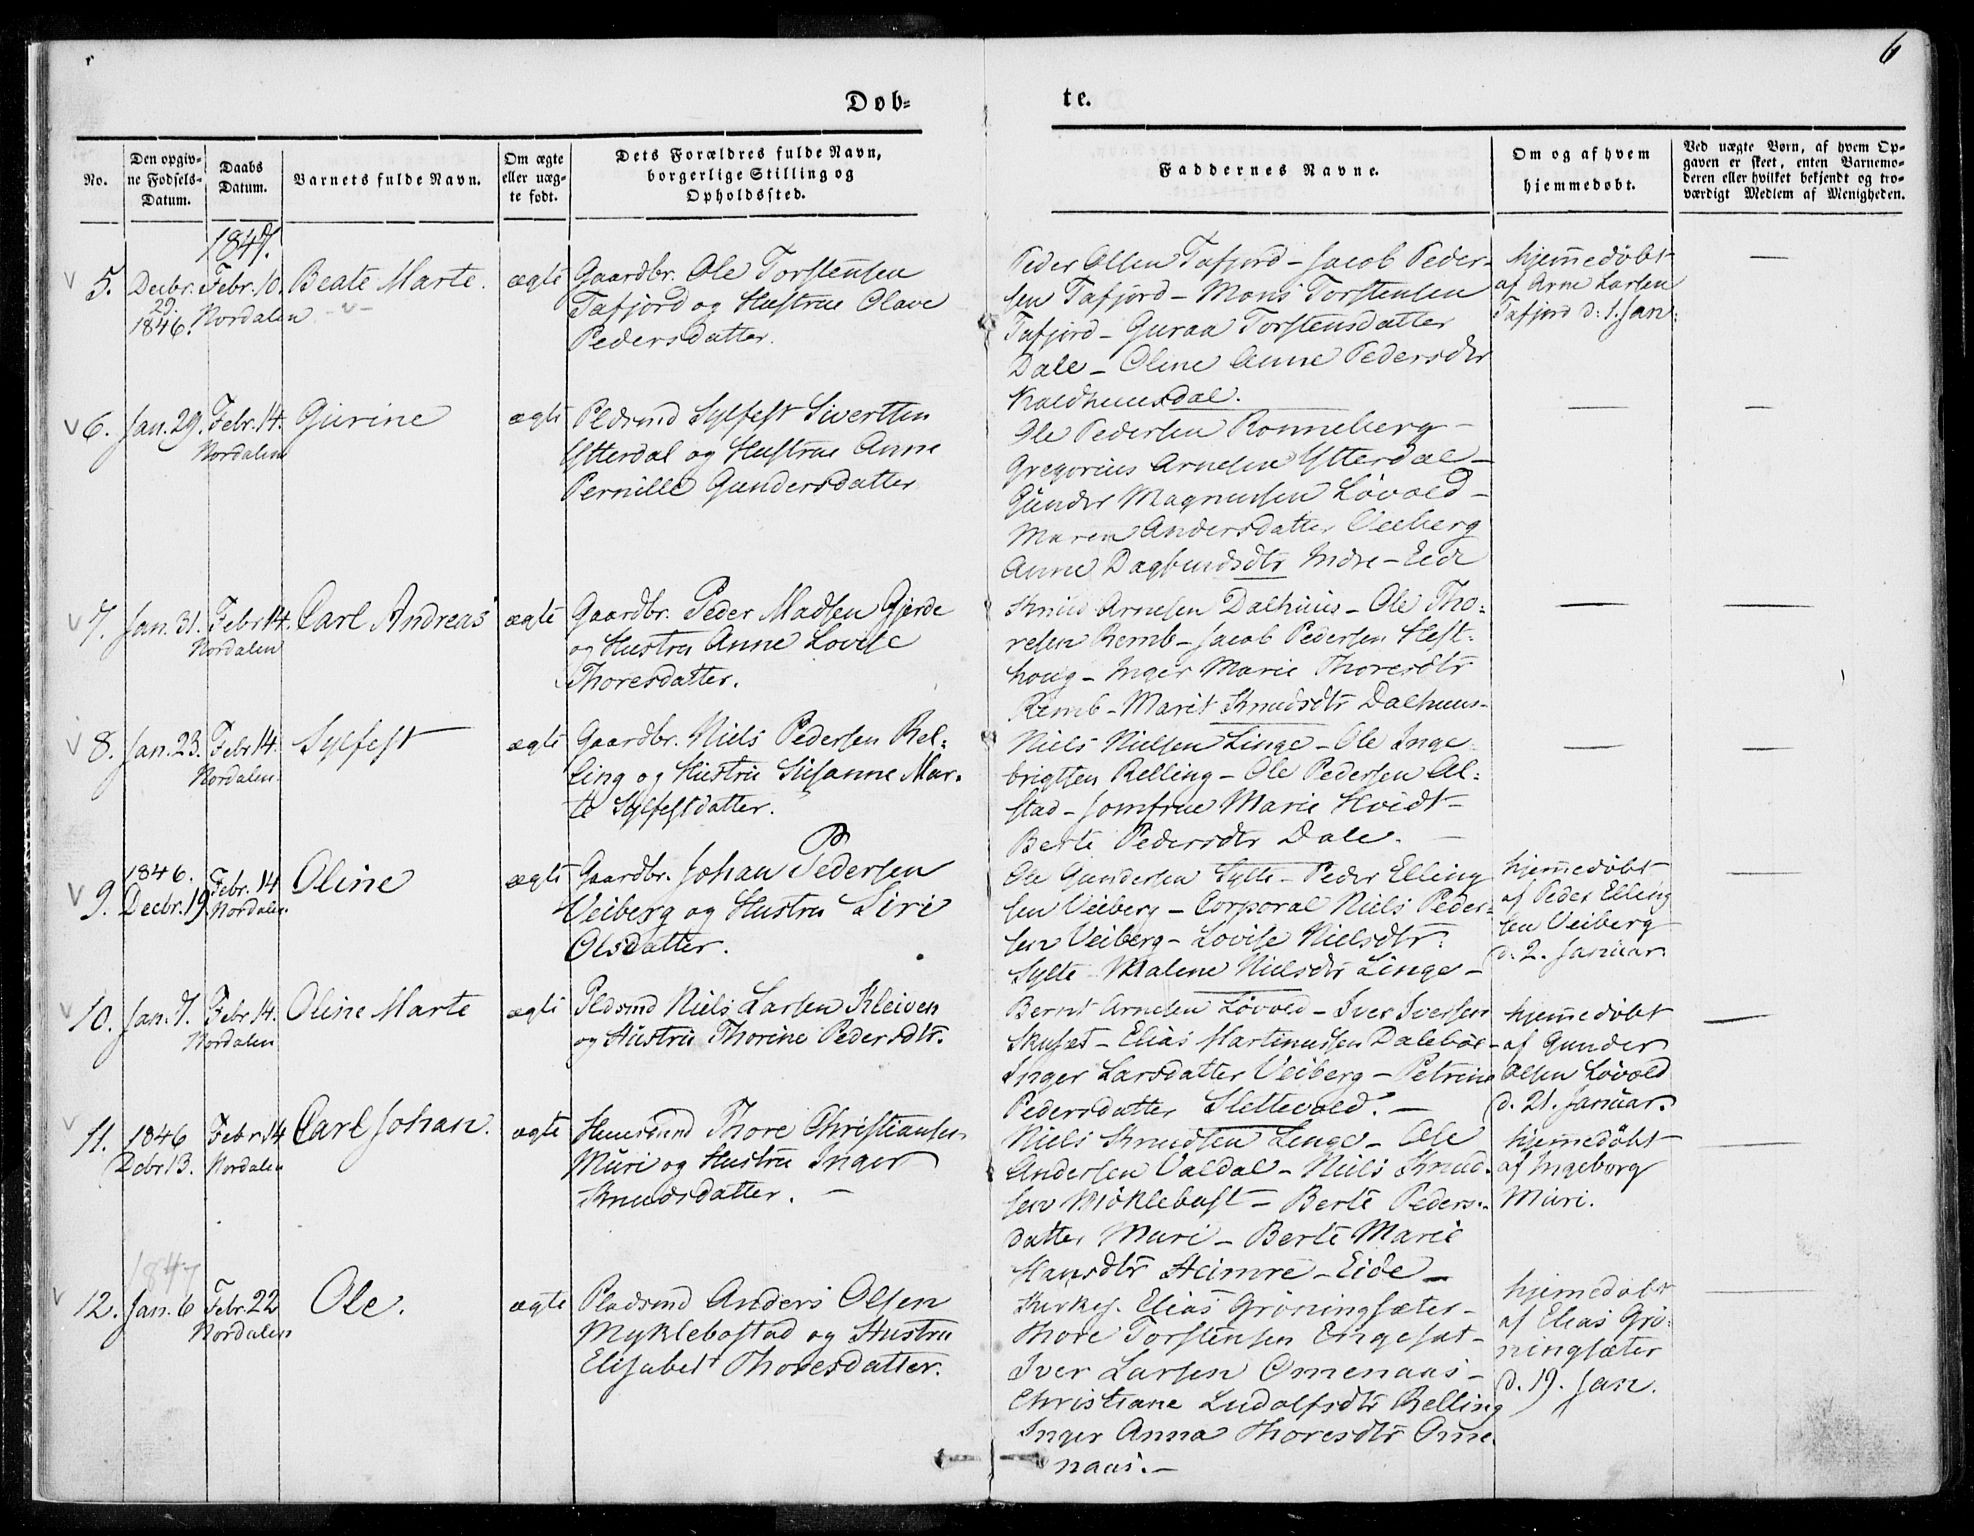 6
Døb-
te.
No.
Den opgiv-
ne Fødsels-
Datum.
Daabs
Datum.
Barnets fulde Navn.
Om ægte
eller uæg-
te født.
Dets Forældres fulde Navn,
borgerlige Stilling og
Opholdssted.
Faddernes Navne.
Om og af hvem
hjemmedøbt.
Ved uægte Børn, af hvem Op-
gaven er skeet, enten Barnemo-
deren eller hvilket bekjendt og tro-
værdigt Medlem af Menigheden.
1847.
5.
Decbr.
29.
1846.
Febr. 10.
Nordalen
Beate Marte.
ægte
Gaardbr. Ole Torstensen
Tafjord og Hustrue Olave
Pedersdatter.
Peder Olsen Tafjord - Jacob Peder-
sen Tafjord - Mons Torstensen
Tafjord - Guraa Torstensdatter
Dale - Oline Anne Pedersdtr
Kaldhuusdal.
hjemmedøbt
af Arne Larsen
Tafjord d: 1. Jan:
6.
Jan. 29.
Febr. 14.
Nordalen
Gjurine
ægte
Pldsmd Sylfest Sivertsen
Ytterdal og Hustrue Anne
Pernille Gundersdatter
Ole Pedersen Rønneberg -
Gregorius Arnesen Ytterdal -
Gunder Magnussen Løvold -
Maren Andersdatter Veiberg
Anne Dagfindsdtr Indre-Eide
7.
Jan. 31.
Febr 14.
Nordalen
Carl Andreas
ægte
Gaardbr. Peder Madsen Gjerde
og Hustru Anne Lovise
Thoresdatter.
Knud Arnesen Dalhuus - Ole Tho-
resen Remb - Jacob Pedersen Hest-
houg - Inger Marie Thoresdtr
Remb - Marit Knudsdtr Dalhuus -
8.
Jan. 23.
Febr 14.
Nordalen.
Sylfest
ægte
Gaardbr. Niels Pedersen Rel-
ling og Hustru Susanne Mar-
te Sylfestdatter.
Niels Nielsen Linge - Ole Inge-
brigtsen Relling - Ole Pedersen Al-
stad - Jomfrue Marie Hvidt -
Berte Pedersdtr Dale. -
9.
1846.
Decbr. 19.
Febr. 14
Nordalen.
Oline
ægte
Gaardbr. Johan Pedersen
Veiberg og Hustru Siri
Olsdatter.
Ole Gundersen Sylte - Peder Elling
sen Veiberg - Corporal Niels Peder-
sen Veiberg - Lovise Nielsdtr.
Sylte - Malene Nielsdtr Linge -
hjemmedøbt
af Peder Elling
sen Veiberg
d. 2. Januar.
10.
Jan. 7.
Febr 14.
Nordalen
Oline Marte
ægte
Pldsmd Niels Larsen Kleiven
og Hustru Thorine Pedersdtr.
Bernt Arnesen Løvold - Iver Iversen
Skusæt - Elias Martinussen Dalebøe -
Inger Larsdatter Veiberg - Petrine
Pedersdatter Slettevold. -
hjemmedøbt
af Gunder
Olsen Løvold
d. 21. Januar.
11.
1846
Decbr 13.
Febr 14
Nordalen
Carl Johan.
ægte
Huusmd Thore Christiansen
Muri og Hustru Inger
Knudsdatter. -
Niels Knudsen Linge - Ole
Andersen Valdal - Niels Knud-
sen Møklebust - Berte Peders-
datter Muri - Berte Marie
Hansdtr Heimre-Eide -
hjemmedøbt
af Ingeborg
Muri.
1847
12.
Jan. 6
Febr. 22
Nordalen
Ole.
ægte
Pladsmd Anders Olsen
Myklebostad og Hustru
Elisabet Thoresdatter.
Kirkes. Elias Grøningsæter -
Thore Torstensen Engeset -
Iver Larsen Omenaas -
Christiane Ludolfsdtr Relling
Inger Anna Thoresdtr Ome-
naas. -
hjemmedøbt
af Elias Grø-
ningsæter
d. 19. Jan.